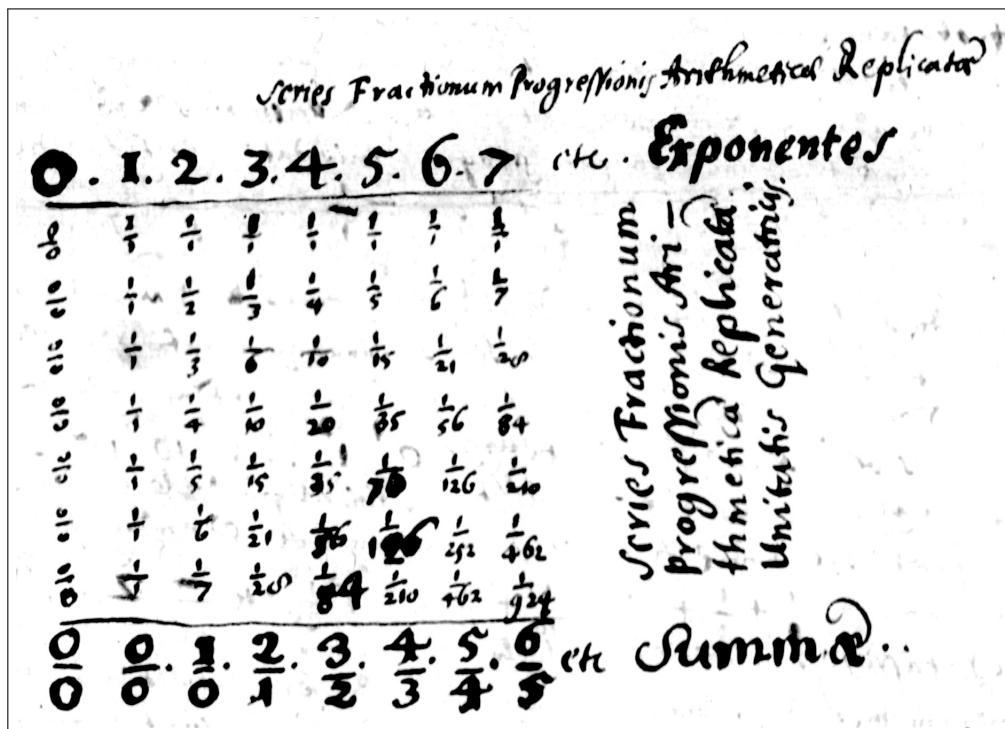 Series Fractionum Progressionis Arithmeticæ Replicatæ
0 . 1 . 2 . 3 . 4 . 5 . 6 . 7 etc . Exponentes
0/0 1/1 1/1 1/1 1/1 1/1 1/1 1/1
0/0 1/1 1/2 1/3 1/4 1/5 1/6 1/7
0/0 1/1 1/3 1/6 1/10 1/15 1/21 1/28
0/0 1/1 1/4 1/10 1/20 1/35 1/56 1/84
0/0 1/1 1/5 1/15 1/35 1/70 1/126 1/210
0/0 1/1 1/6 1/21 1/56 1/126 1/252 1/462
0/0 1/1 1/7 1/28 1/84 1/210 1/462 1/924
0/0 0/0 . 1/0 . 2/1 . 3/2 . 4/3 . 5/4 . 6/5 etc Summæ ..
Series Fractionum
progressionis Ari–
thmetica Replicata:
Unitatis Generatrijs.